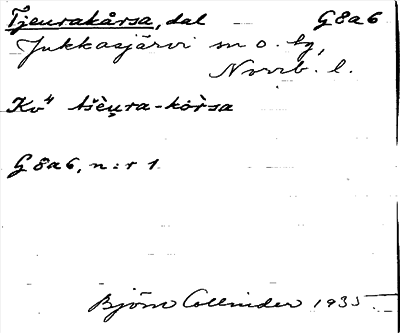 Tjeurakårsa, dal G8a6
Jukkasjärvi sn o. tg,
Norrb. l.
Kv⁴ tšèu̯ra-kòrsa
G8a6, n:r 1
Björn Collinder 1935